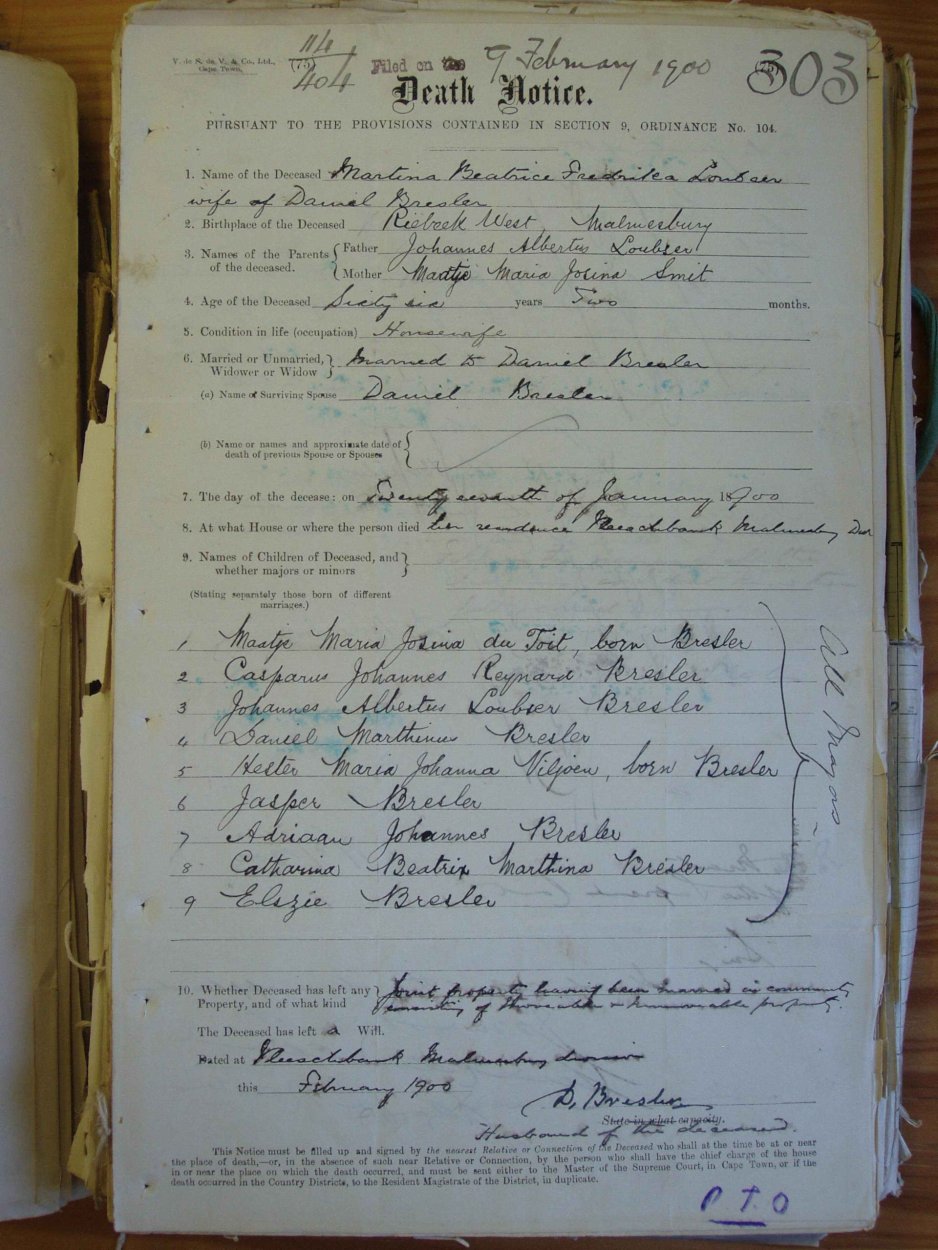 V. de S. de V. & Co., Ltd.,
Cape Town.
114
(75)
404
Filed on the 9 February 1900
(75)
303
Death Notice.
PURSUANT TO THE PROVISIONS CONTAINED IN SECTION 9, ORDINANCE No. 104.
1. Name of the Deceased Martina Beatrice Fredrika Loubser
wife of Daniel Bresler
2. Birthplace of the Deceased Riebeek West, Malmesbury
3. Names of the Parents of the deceased. { Father Johannes Albertus Loubser
Mother Maatje Maria Josina Smit
4. Age of the Deceased Sixty six years Two months.
5. Condition in life (occupation) Housewife
6. Married or Unmarried, Widower or Widow } Married to Daniel Bresler
(a) Name of Surviving Spouse Daniel Bresler
(b) Name or names and approximate date of
death of previous Spouse or Spouses {
7. The day of the decease: on Twenty seventh of January 1900
8. At what House or where the person died her residence Vleeschbank Malmesbury Dist
9. Names of Children of Deceased, and
whether majors or minors }
(Stating separately those born of different
marriages.)
1 Maatje Maria Josina du Toit, born Bresler
2 Casparus Johannes Reynard Bresler
3 Johannes Albertus Loubser Bresler
4 Daniel Marthinus Bresler
5 Hester Maria Johanna Viljoen, born Bresler
6 Jasper Bresler
7 Adriaan Johannes Bresler
8 Catharina Beatrix Marthina Bresler
9 Elszie Bresler
All Majors
10. Whether Deceased has left any } Joint property having been married in community
Property, and of what kind consisting of Moveable & Immovable property.
The Deceased has left a Will.
Dated at Vleeschbank Malmesbury division
this February 1900
D. Bresler
State in what capacity.
Husband of the deceased.
This Notice must be filled up and signed by the nearest Relative or Connection of the Deceased who shall at the time be at or near
the place of death,—or, in the absence of such near Relative or Connection, by the person who shall have the chief charge of the house
in or near the place on which the death occurred, and must be sent either to the Master of the Supreme Court, in Cape Town, or if the
death occurred in the Country Districts, to the Resident Magistrate of the District, in duplicate.
P T O